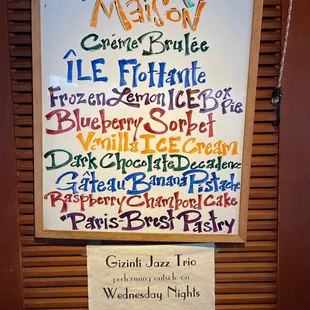 Maison
Créme Brulée
ÎLE Flottante
Frozen Lemon ICE Box Pie
Blueberry Sorbet
Vanilla ICE Cream
Dark Chocolate Decadence
Gâteau Banana Pistache
Raspberry Chambord Cake
*Paris-Brest Pastry
Gizinti Jazz Trio
performing outside on
Wednesday Nights